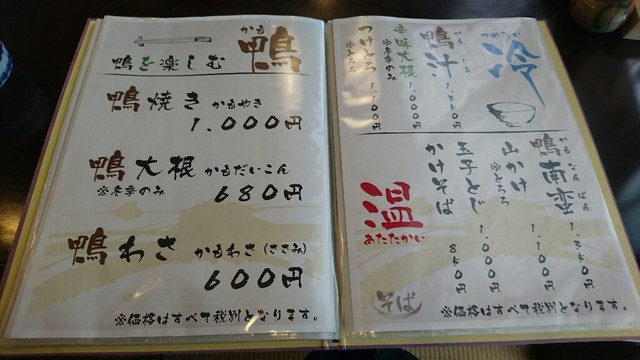 かる
鴨
鴨を楽しむ
鴨焼き かるやき
1.000円
鴨大根 かるだいこん
※冬季のみ
680円
鴨わさ かるわさ(ささみ)
600円
※価格はすべて税別となります。
つめたい
冷
鴨汁 1.350円
かも じる
辛味大根 1.000円
※冬季のみ
つけとろ 1.100円
※とろろ
温
あたたかい
鴨南蛮 1.350円
かも なん ばん
山かけ 1.100円
※とろろ
玉子とじ 1.000円
かけそば 850円
そば
※価格はすべて税別となります。